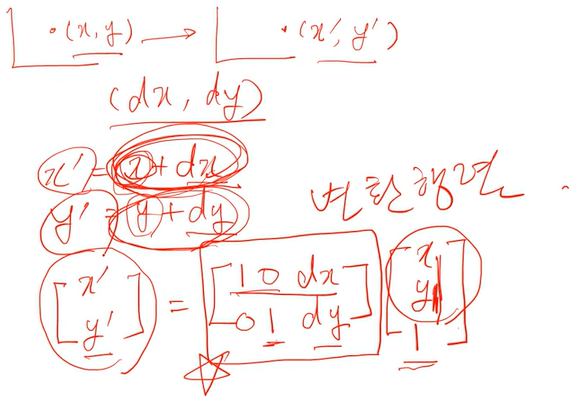 (x, y) → (x', y')
(dx, dy)
x' = x + dx
y' = y + dy
변환행렬
[x' y'] = [1 0 dx 0 1 dy] [x y 1]